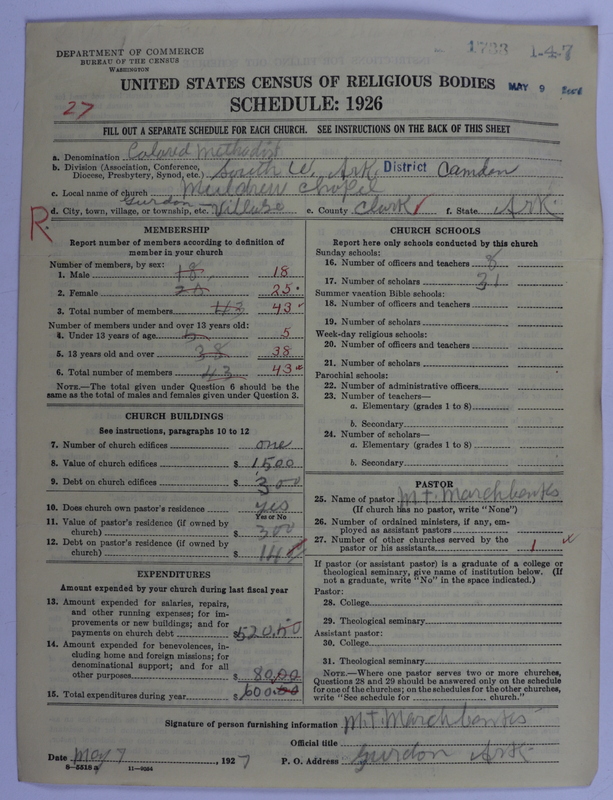 DEPARTMENT OF COMMERCE
BUREAU OF THE CENSUS
WASHINGTON
1733 1-4-7
UNITED STATES CENSUS OF RELIGIOUS BODIES
MAY 9
SCHEDULE: 1926
27
FILL OUT A SEPARATE SCHEDULE FOR EACH CHURCH. SEE INSTRUCTIONS ON THE BACK OF THIS SHEET
a. Denomination Colored Methodist
b. Division (Association, Conference, Diocese, Presbytery, Synod, etc.) South W. Ark. District Camdon
c. Local name of church Muldrew Chapel
d. City, town, village, or township, etc. Gurdon - Village e. County Clark f. State Ark.
R.
MEMBERSHIP
Report number of members according to definition of
member in your church
Number of members, by sex:
1. Male 18 18
2. Female 25 25
3. Total number of members 43 43
Number of members under and over 13 years old:
4. Under 13 years of age 5 5
5. 13 years old and over 38 38
6. Total number of members 43 43
NOTE.—The total given under Question 6 should be
same as the total of males and females given under Question 3.
CHURCH BUILDINGS
See instructions, paragraphs 10 to 12
7. Number of church edifices one
8. Value of church edifices $ 1500
9. Debt on church edifices $ 300
10. Does church own pastor's residence yes
Yes or No
11. Value of pastor's residence (if owned by
church) $ 300
12. Debt on pastor's residence (if owned by
church) $
EXPENDITURES
Amount expended by your church during last fiscal year
13. Amount expended for salaries, repairs,
and other running expenses; for im-
provements or new buildings; and for
payments on church debt $ 520.00
14. Amount expended for benevolences, in-
cluding home and foreign missions; for
denominational support; and for all
other purposes $ 80.00
15. Total expenditures during year $ 600.00
CHURCH SCHOOLS
Report here only schools conducted by this church
Sunday schools:
16. Number of officers and teachers 8
17. Number of scholars 31
Summer vacation Bible schools:
18. Number of officers and teachers
19. Number of scholars
Week-day religious schools:
20. Number of officers and teachers
21. Number of scholars
Parochial schools:
22. Number of administrative officers
23. Number of teachers—
a. Elementary (grades 1 to 8)
b. Secondary
24. Number of scholars—
a. Elementary (grades 1 to 8)
b. Secondary
PASTOR
25. Name of pastor M.T. Marchbanks
(If church has no pastor, write "None")
26. Number of ordained ministers, if any, em-
ployed as assistant pastors
27. Number of other churches served by the
pastor or his assistants 1 x
If pastor (or assistant pastor) is a graduate of a college or
theological seminary, give name of institution below. (If
not a graduate, write "No" in the space indicated.)
Pastor:
28. College
29. Theological seminary
Assistant pastor:
30. College
31. Theological seminary
NOTE.—Where one pastor serves two or more churches,
Questions 28 and 29 should be answered only on the schedule
for one of the churches; on the schedules for the other churches,
write "See schedule for church."
Signature of person furnishing information M.T. Marchbanks
Official title
Date May 7, 1927 P. O. Address Gurdon Ark
8—5318a 11—9094